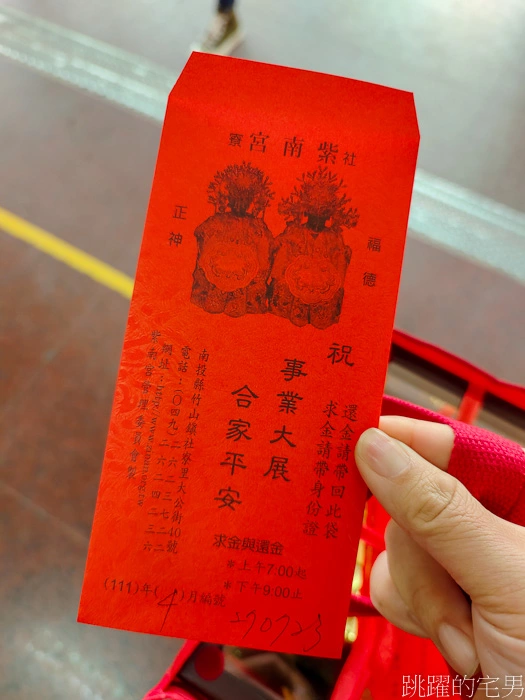 社紫南宮寮
福德
正神
祝
事業大展
合家平安
還金請帶回此袋
求金請帶身份證
南投縣竹山鎮社寮里大公街40號
電話：（〇四九）二六二三七二二
二六二四二三六
網址：http://www.
紫南宮管理委員會製
求金與還金
※上午7:00起
※下午9:00止
(111)年(4)月編號
290723
跳躍的宅男